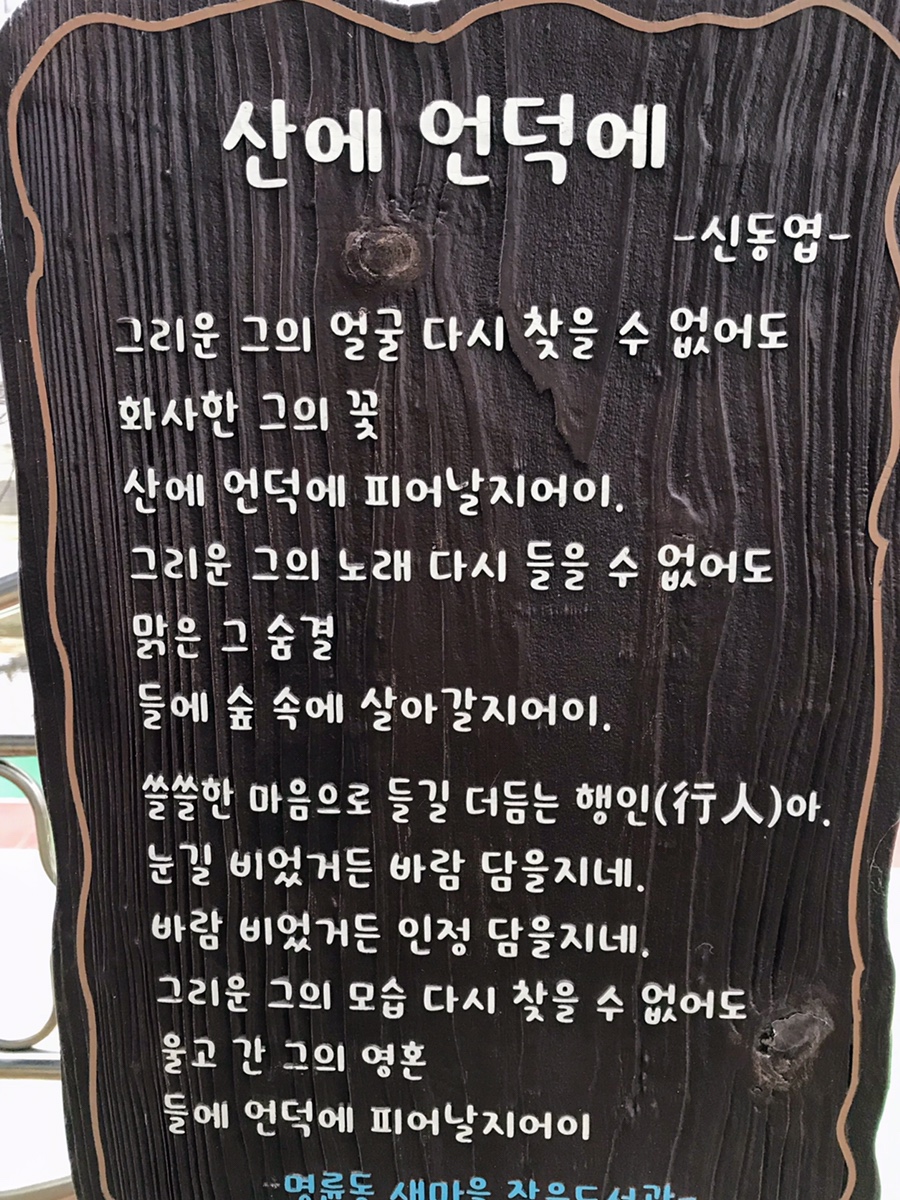 산에 언덕에
-신동엽-
그리운 그의 얼굴 다시 찾을 수 없어도
화사한 그의 꽃
산에 언덕에 피어날지어이.
그리운 그의 노래 다시 들을 수 없어도
맑은 그 숨결
들에 숲 속에 살아갈지어이.
쓸쓸한 마음으로 들길 더듬는 행인(行人)아.
눈길 비었거든 바람 담을지네.
바람 비었거든 인정 담을지네.
그리운 그의 모습 다시 찾을 수 없어도
울고 간 그의 영혼
들에 언덕에 피어날지어이
-명륜동 새마을 작은도서관-